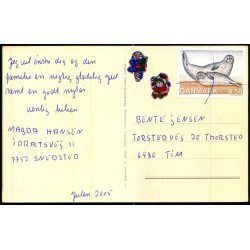 Jeg vil ønske dig og den
familie en rigtig glædelig jul
samt en godt nytår
venlig hilsen
MAGDA HANSEN
IDRÆTSVEJ 11
7752 SNEDSTED
Julen 2005
DANMARK 4.50
BENTE JENSEN
TORSTEDVEJ 06 THORSTED
6980 TIM